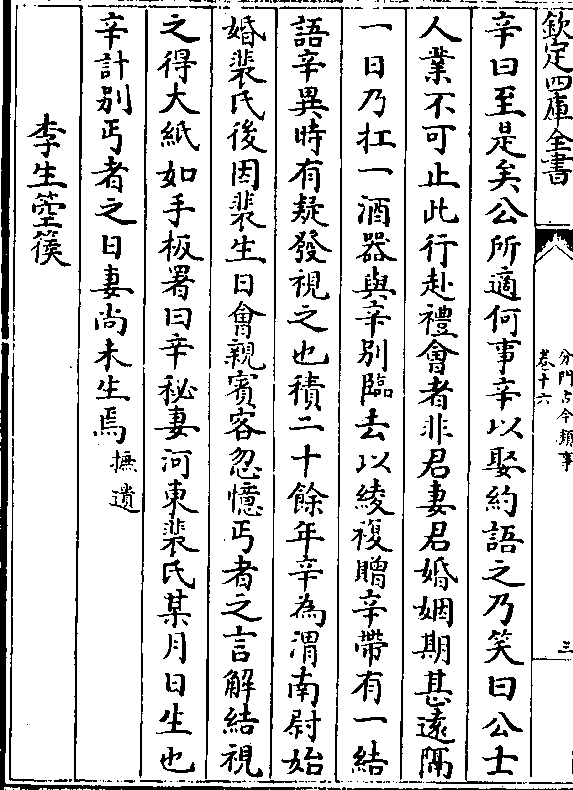 欽定四庫全書
分門古今類事
卷十六
三
辛曰至是矣公所適何事辛以娶約語之乃笑曰公士
人業不可止此行赴禮會者非君妻君婚姻期甚遠隔
一日乃扛一酒器與辛別臨去以綾複贈辛帶有一結
語辛異時有疑發視之也積二十餘年辛為渭南尉始
婚裴氏後因裴生日會親賓客忽憶丐者之言解結視
之得大紙如手板署曰辛祕妻河東裴氏某月日生也
辛計別丐者之日妻尚未生焉摭遺
李生箜篌